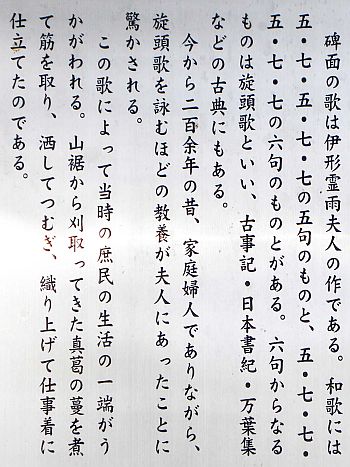 碑面の歌は伊形霊雨夫人の作である。和歌には
五・七・五・七・七の五句のものと、五・七・七・
五・七・七の六句のものとがある。六句からなる
ものは旋頭歌といい、古事記・日本書紀・万葉集
などの古典にもある。
今から二百余年の昔、家庭婦人でありながら、
旋頭歌を詠むほどの教養が夫人にあったことに
驚かされる。
この歌によって当時の庶民の生活の一端がう
かがわれる。山裾から刈取ってきた真葛の蔓を煮
て筋を取り、洒してつむぎ、織り上げて仕事着に
仕立てたのである。